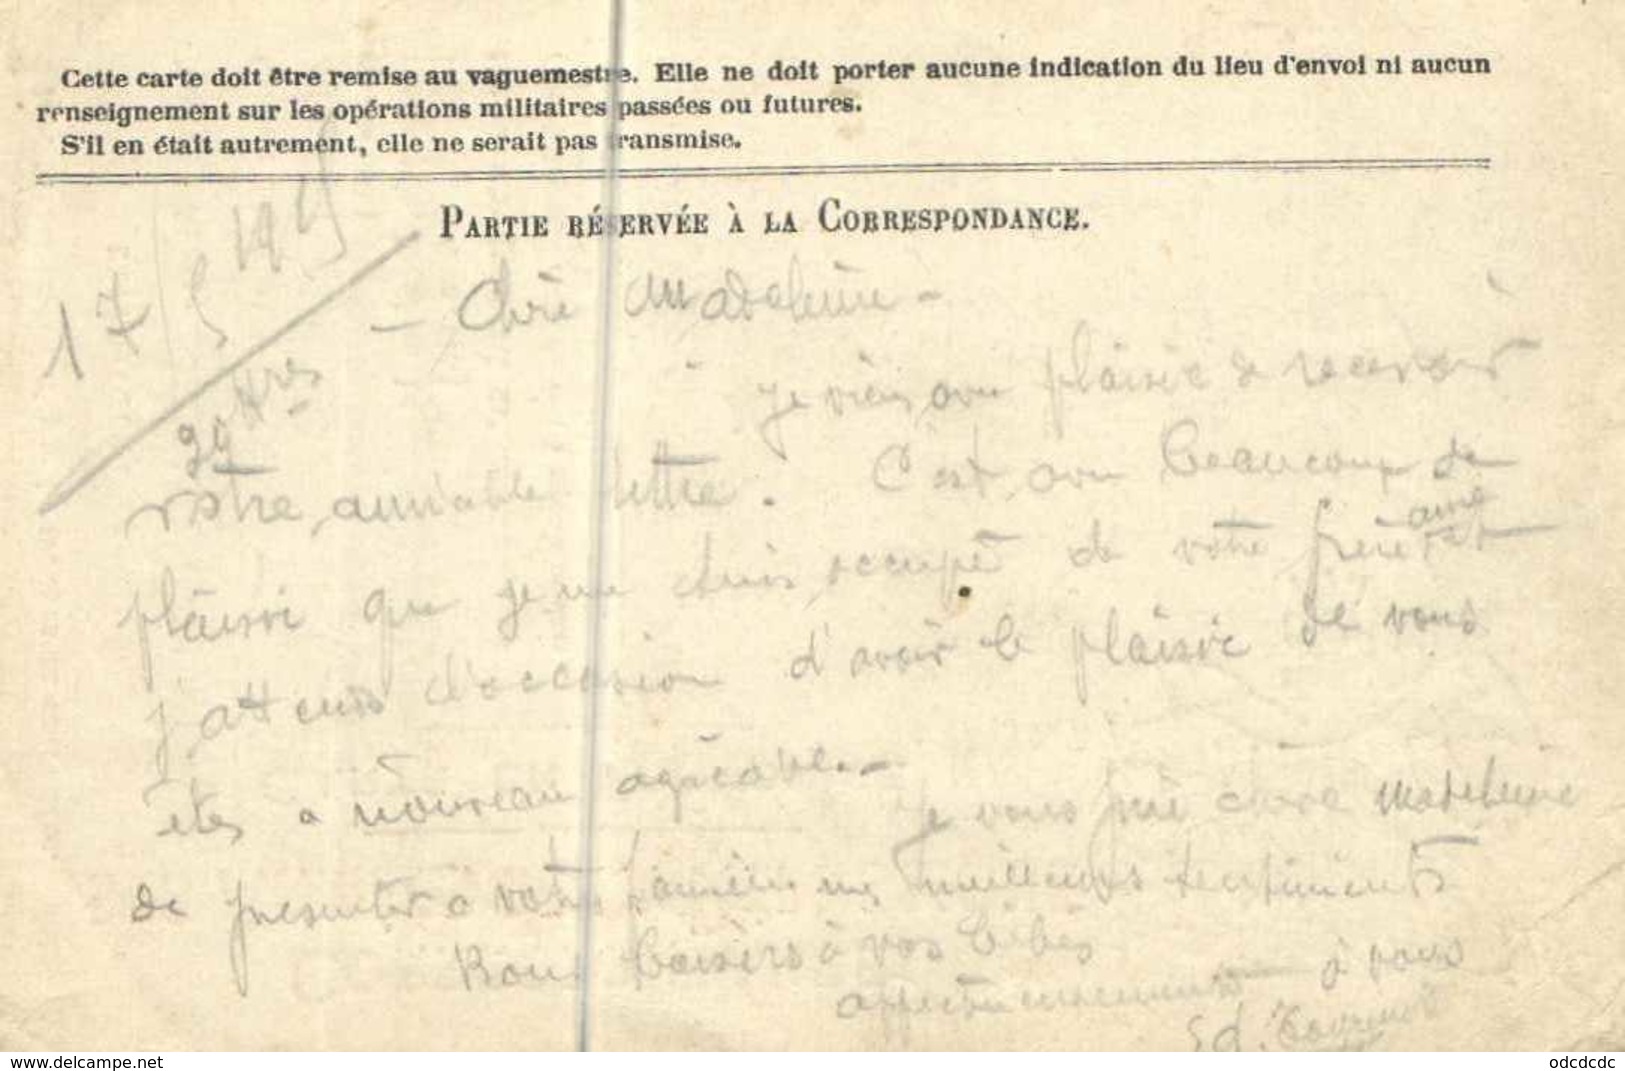 Cette carte doit être remise au vaguemestre. Elle ne doit porter aucune indication du lieu d'envoi ni aucun
renseignement sur les opérations militaires passées ou futures.
S'il en était autrement, elle ne serait pas transmise.
PARTIE RÉSERVÉE À LA CORRESPONDANCE.
17/5 195
- Chère Madeleine -
je viens avec plaisir de recevoir
votre aimable lettre. C'est avec beaucoup de
plaisir que je me suis occupé de votre frère et
j'attends l'occasion d'avoir le plaisir de vous
être à nouveau agréable. -
Je vous prie chère Madeleine
de présenter à votre famille mes meilleurs sentiments
Bons baisers à vos bébés
affectueusement à vous
Ed.
www.delcampe.net
odcdcdc